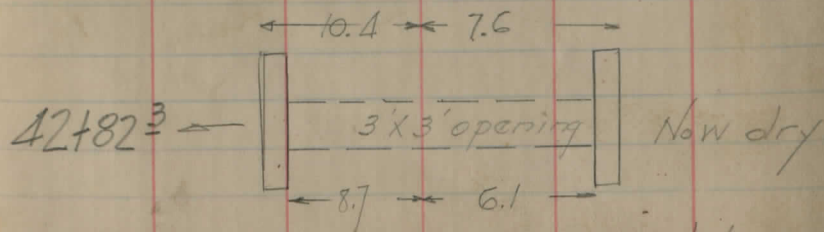 10.4 7.6
42+82³ 3'x3' opening Now dry
8.7 6.1